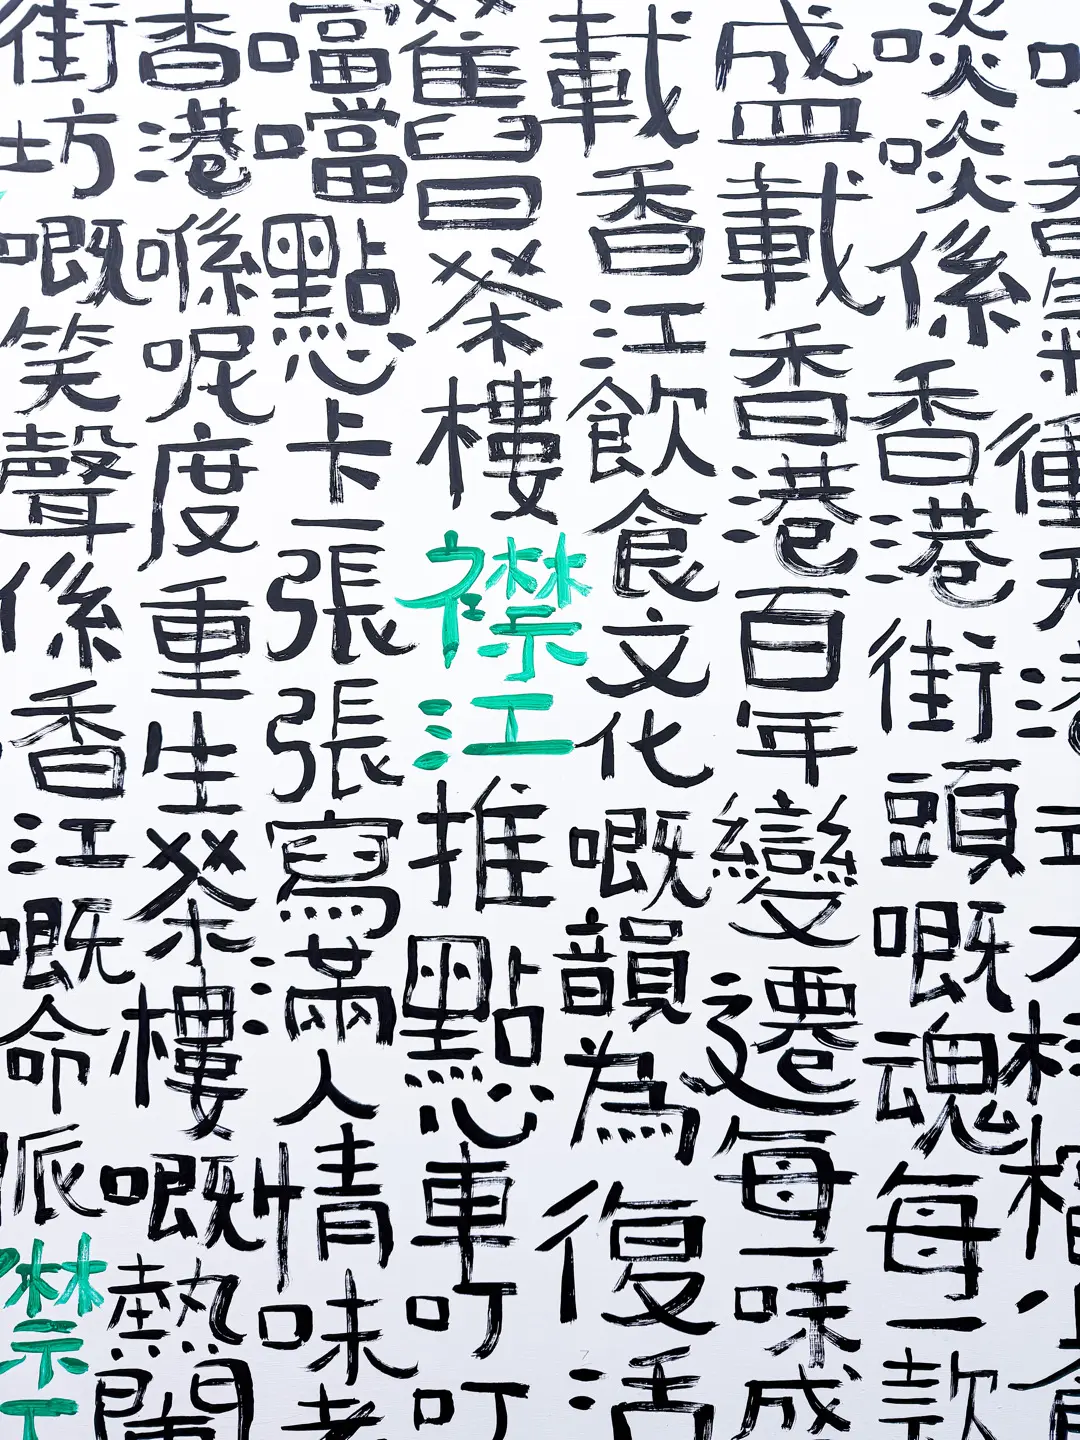 香衝天港式大
啖啖係香港街頭嘅魂每一款
盛載香港百年變遷每一味成
載香江飲食文化嘅韻為復活
舊日茶樓襟江推點心車叮叮
噹噹點心卡一張張寫滿人情味老
香港喺呢度重生茶樓嘅熱鬧
街坊嘅笑聲係香江嘅命脈襟江